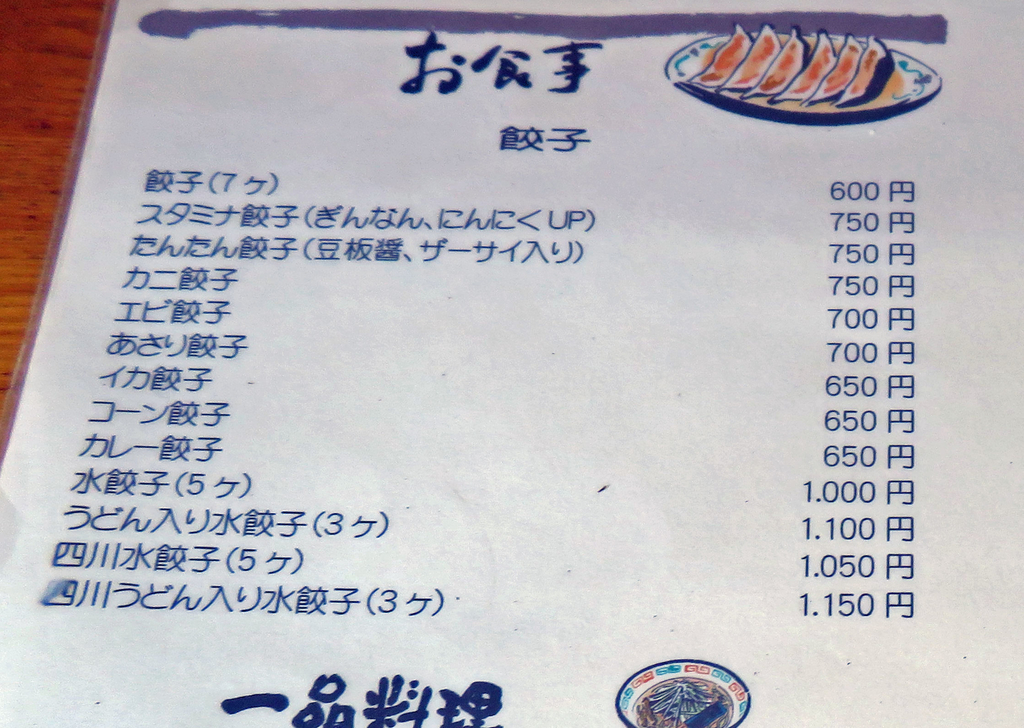 お食事
餃子
餃子(7ヶ) 600円
スタミナ餃子(ぎんなん、にんにくUP) 750円
たんたん餃子(豆板醤、ザーサイ入り) 750円
カニ餃子 750円
エビ餃子 700円
あさり餃子 700円
イカ餃子 650円
コーン餃子 650円
カレー餃子 650円
水餃子(5ヶ) 1.000円
うどん入り水餃子(3ヶ) 1.100円
四川水餃子(5ヶ) 1.050円
四川うどん入り水餃子(3ヶ) 1.150円
一品料理